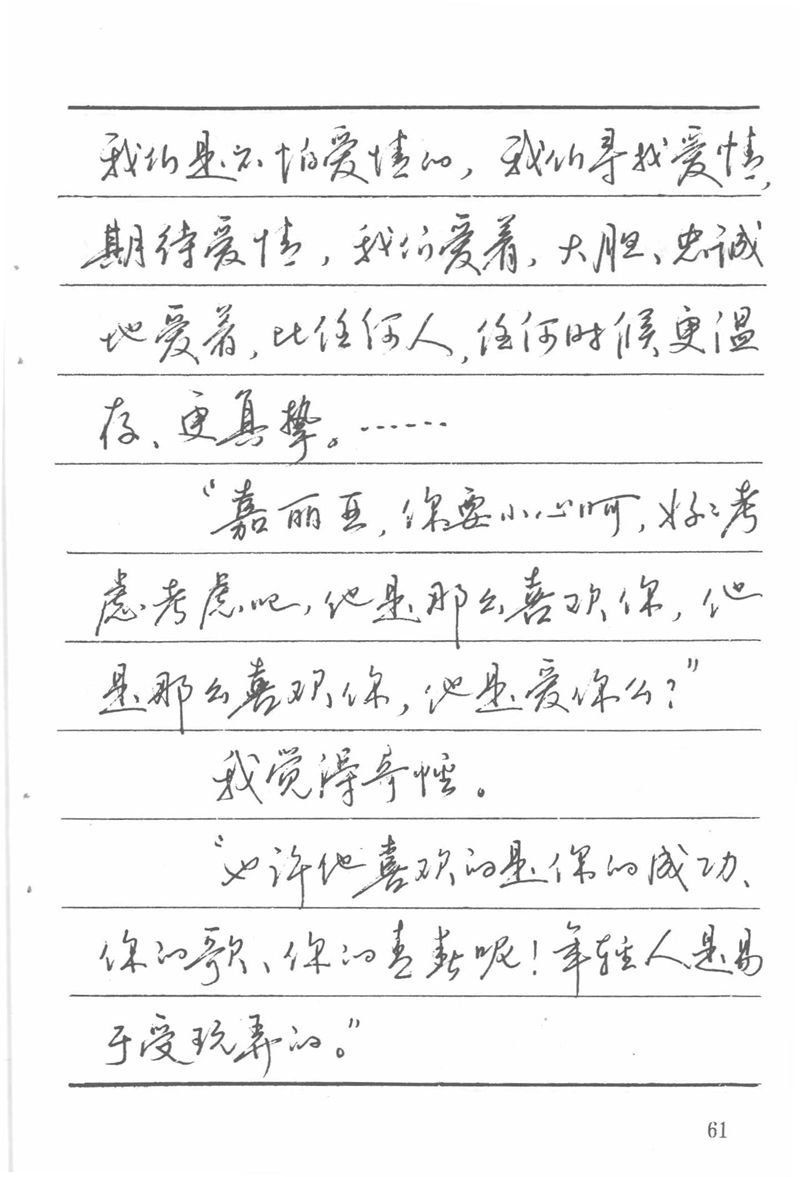 我们是不怕爱情的，我们寻找爱情，
期待爱情，我们爱着，大胆、忠诚
地爱着，比任何人，任何时候更温
存、更真挚。……
“嘉丽亚，你要小心呵，好々考
虑考虑吧，他是那么喜欢你，他
是那么喜欢你，他是爱你么？”
我觉得奇怪。
“也许他喜欢的是你的成功、
你的歌、你的青春呢！年轻人是易
于受玩弄的。”
61